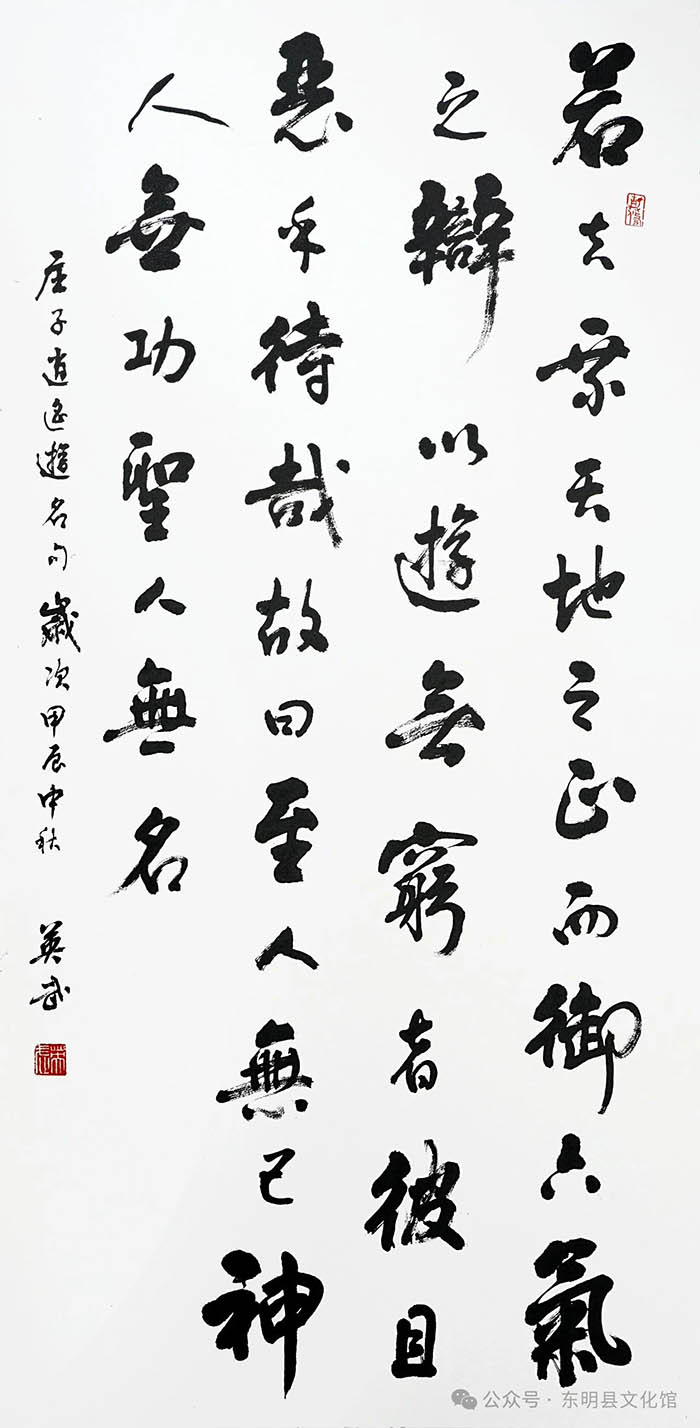 若夫乘天地之正而御六氣
之辯以遊無窮者彼且
惡乎待哉故曰至人無己神
人無功聖人無名
庄子逍遥遊名句歲次甲辰中秋 英武
公众号 · 东明县文化馆